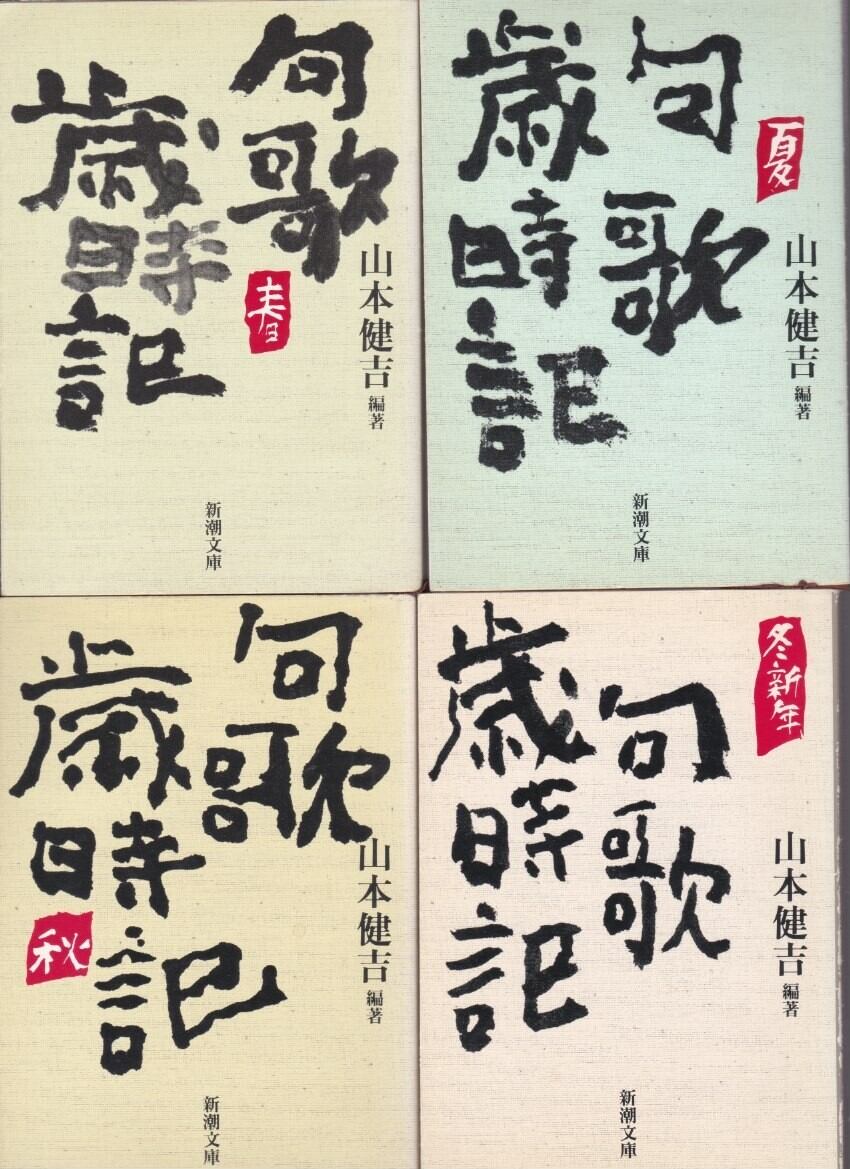 句歌
歳時記
春
山本健吉 編著
新潮文庫
句歌
歳時記
夏
山本健吉 編著
新潮文庫
句歌
歳時記
秋
山本健吉 編著
新潮文庫
冬・新年
句歌
歳時記
山本健吉 編著
新潮文庫